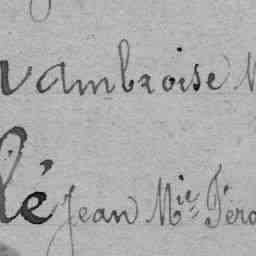 ambroise
lé Jean Mie Féro